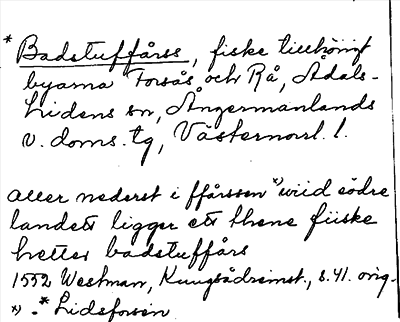 * Badstuffårss, fiske tillhörigt
byarna Forsås och Rå, Ådals-
Lidens sn, Ångermanlands
v. doms. tg, Västernorrl. l.
aller nederst i ffårssen *) wiid södre
landett ligger ett thene fiiske
hetter badstuffårs
1552 Westman, Kungsådreinst., s. 41. orig.
*) .* Lidsforsen